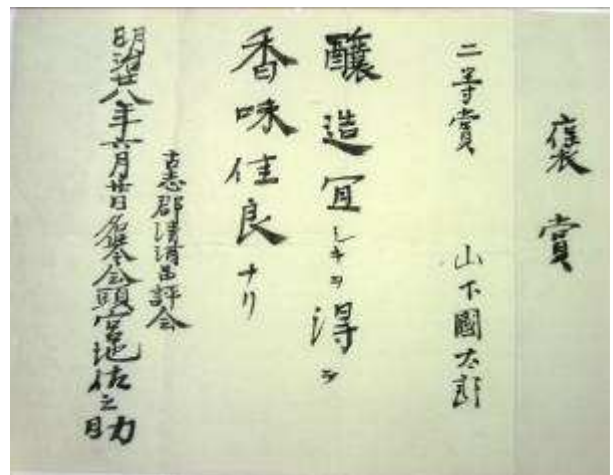 褒賞
二等賞 山下國太郎
醸造宜シキヲ得テ
香味佳良ナリ
古志郡清酒品評会
明治廿八年六月廿日名誉会頭宮地佐之助